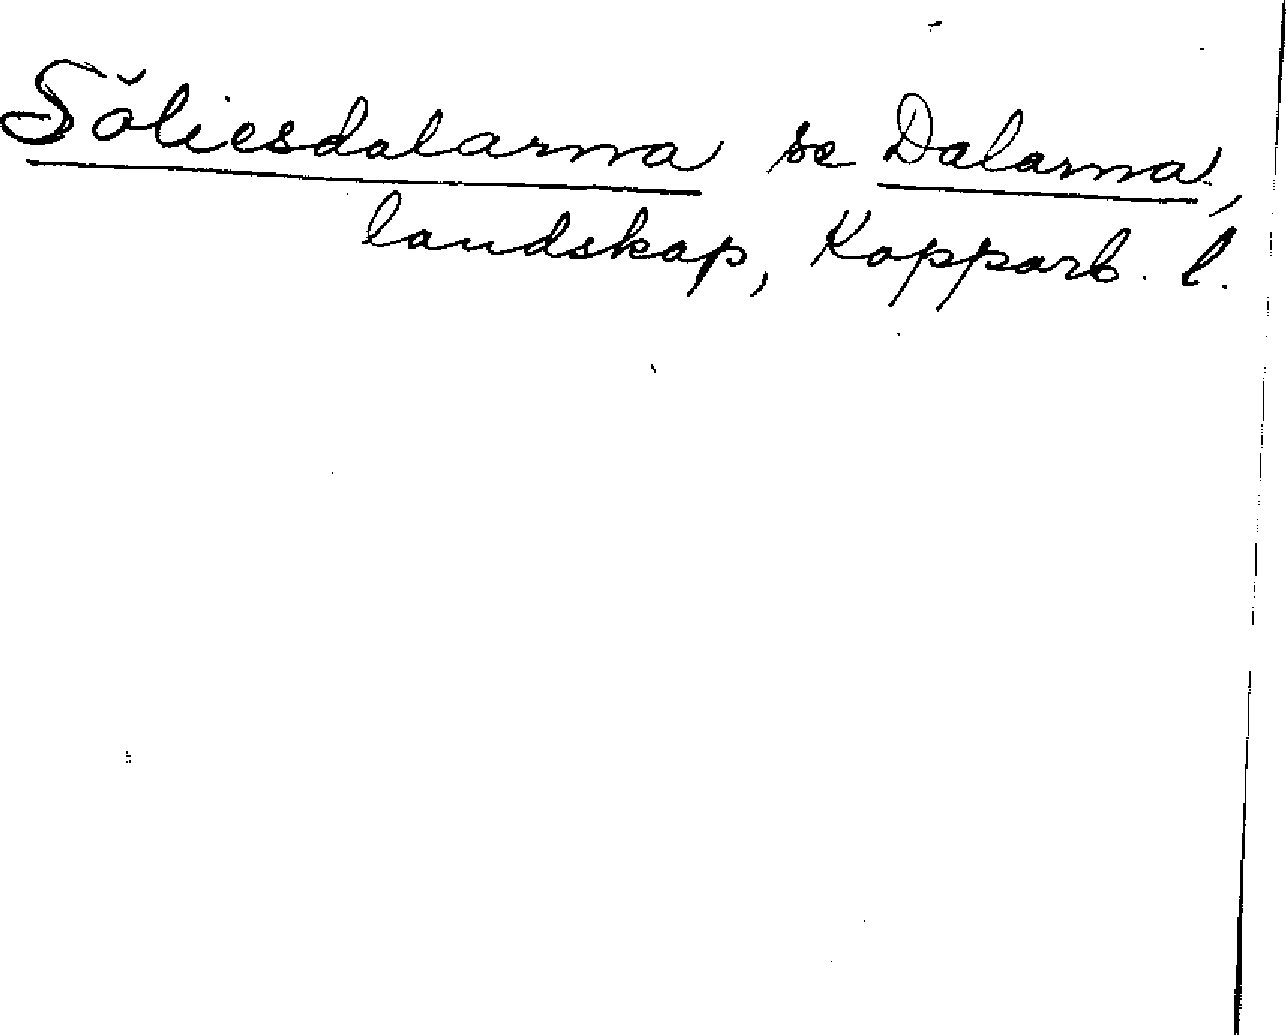 Söliesdalarna se Dalarna,
landskap, Kopparb. l.